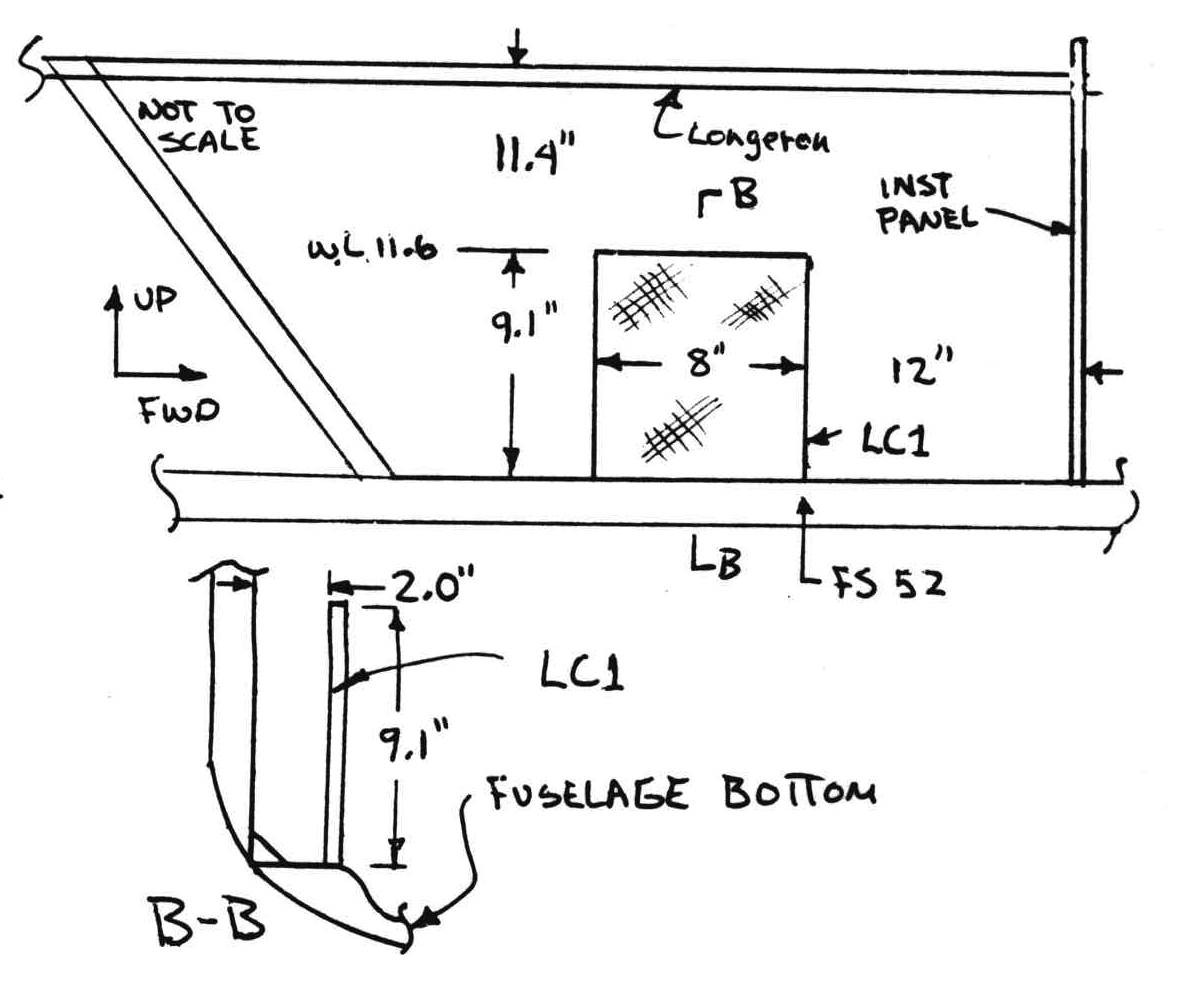 NOT TO
SCALE
11.4"
Longeron
B
INST
PANEL
W.L. 11.6
UP
9.1"
8"
12"
FWD
LC1
B
FS 52
2.0"
LC1
9.1"
FUSELAGE BOTTOM
B-B